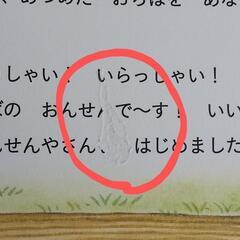 、めつめた　おちばを　あな
しゃい！　いらっしゃい！
ばの　おんせんで〜す！　いい
んせんやさん、　はじめました